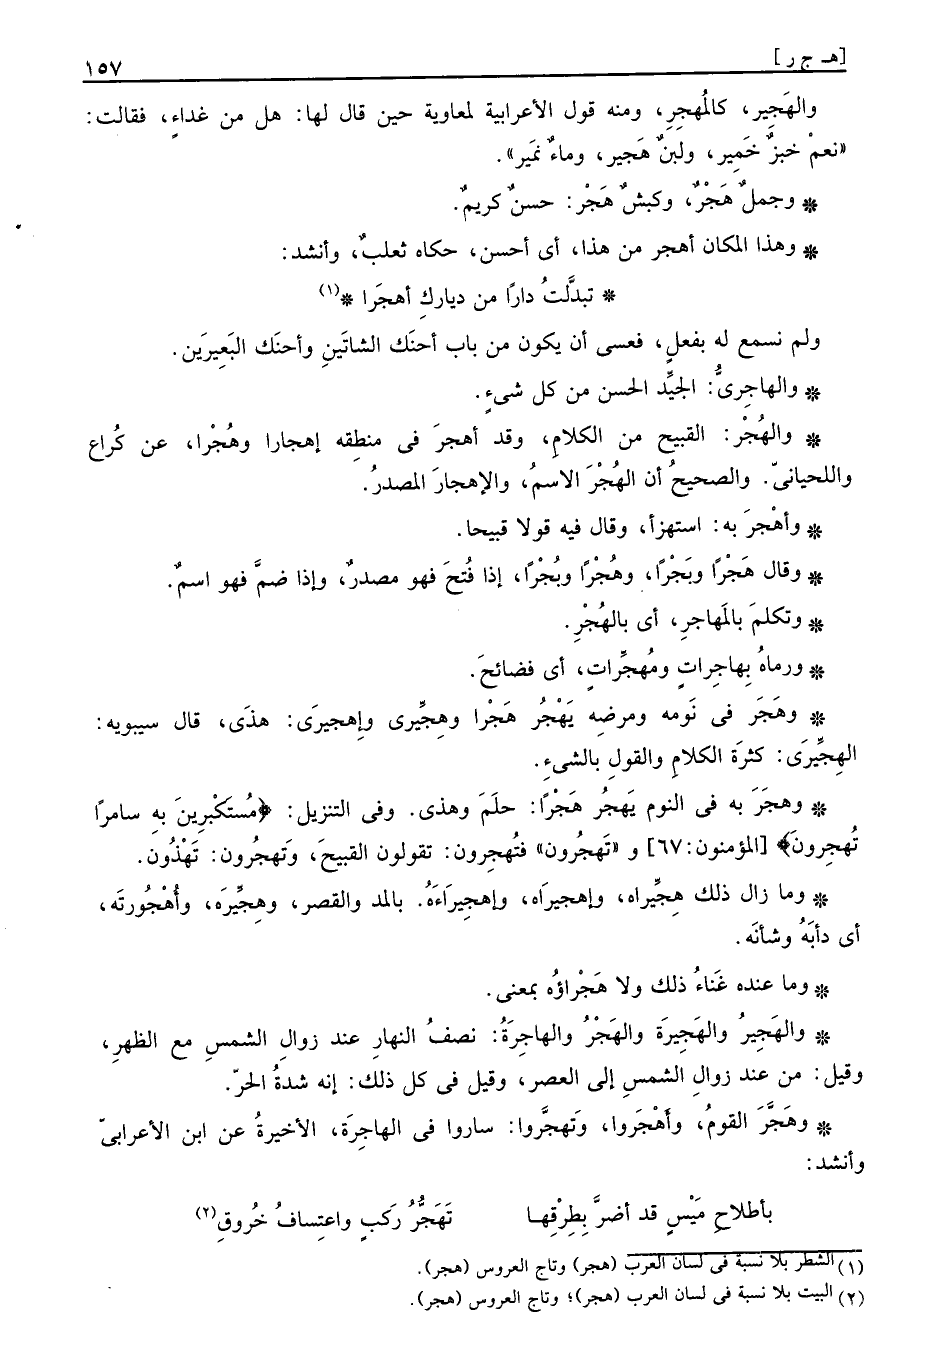 [هـ ج ر] ١٥٧
والهَجِير، كالمُهجِرِ، ومنه قول الأعرابية لمعاوية حين قال لها: هل من غداءٍ، فقالت:
«نعمْ خبزٌ خَمِير، ولبنٌ هَجير، وماءٌ نمَير».
* وجملٌ هَجْرٌ، وكبشٌ هَجْر: حسنٌ كريمٌ.
* وهذا المكان أهجر من هذا، أى أحسن، حكاه ثعلبٌ، وأنشد:
* تبدَّلتُ دارًا من ديارِكِ أهجَرا *(١)
ولم نسمع له بفعلٍ، فعسى أن يكون من باب أحنَك الشاتَينِ وأحنَك البَعِيرَين.
* والهاجِرىُّ: الجيِّد الحسن من كل شىءٍ.
* والهُجْر: القبيح من الكلامِ، وقد أهجرَ فى منطقِه إهجارا وهُجْرا، عن كُراع
واللحيانىّ. والصحيحُ أن الهُجْرَ الاسمُ، والإهجارَ المصدرُ.
* وأهْجرَ به: استهزأ، وقال فيه قولا قبيحا.
* وقال هَجْرًا وبَجْرًا، وهُجْرًا وبُجْرًا، إذا فُتحَ فهو مصدرٌ، وإذا ضمَّ فهو اسمٌ.
* وتكلمَ بالَمهاجرِ، أى بالهُجْرِ.
* ورماهُ بِهاجِراتٍ ومُهجِّراتٍ، أى فضائحَ.
* وهَجَر فى نَومه ومرضِه يَهْجُر هَجْرا وهِجِّيرى وإهجيرَى: هذَى، قال سيبويه:
الهِجِّيرَى: كثرَة الكلامِ والقولِ بالشىءِ.
* وهجَرَ به فى النوم يَهجُر هَجْرًا: حلَمَ وهذى. وفى التنزيل: ﴿مُستَكْبِرِينَ بهِ سامرًا
تُهجِرونَ﴾ [المؤمنون:٦٧] و «تَهجُرون» فتُهجِرون: تقولون القبيحَ، وَتهجُرون: تَهْذُون.
* وما زال ذلك هِجِّيراه، وإهجيرَاه، وإهجيرَاءَهُ. بالمد والقصر، وهِجِّيرَه، وأُهْجُورتَه،
أى دأبَهُ وشأنَه.
* وما عنده غَناءُ ذلك ولا هَجْراؤُه بمعنى.
* والهَجِيرُ والهَجِيرَة والهَجْرُ والهاجِرَةُ: نصفُ النهارِ عند زوالِ الشمسِ مع الظهرِ،
وقيل: من عند زوالِ الشمسِ إلى العصرِ، وقيل فى كل ذلك: إنه شدةُ الحرّ.
* وهَجَّرَ القومُ، وأهْجَروا، وَتهجَّروا: ساروا فى الهاجِرَة، الأخيرةُ عن ابن الأعرابىّ
وأنشد:
بأطلاحِ مَيْسٍ قد أضرَّ بِطِرْقِهـا تَهَجُّرُ رَكبٍ واعتِسافُ خُروقِ(٢)
(١) الشطر بلا نسبة فى لسان العرب (هجر) وتاج العروس (هجر).
(٢) البيت بلا نسبة فى لسان العرب (هجر)؛ وتاج العروس (هجر).